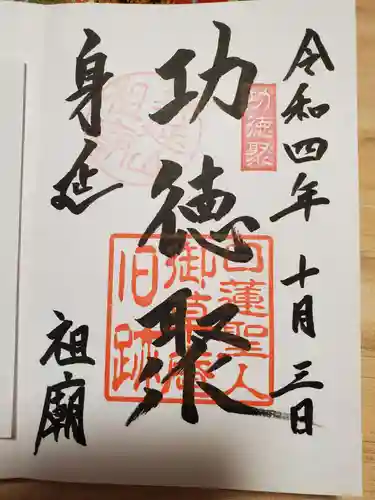 令和四年 十月三日
功徳聚
功徳聚
日蓮聖人
御草庵
旧跡
身延
祖廟